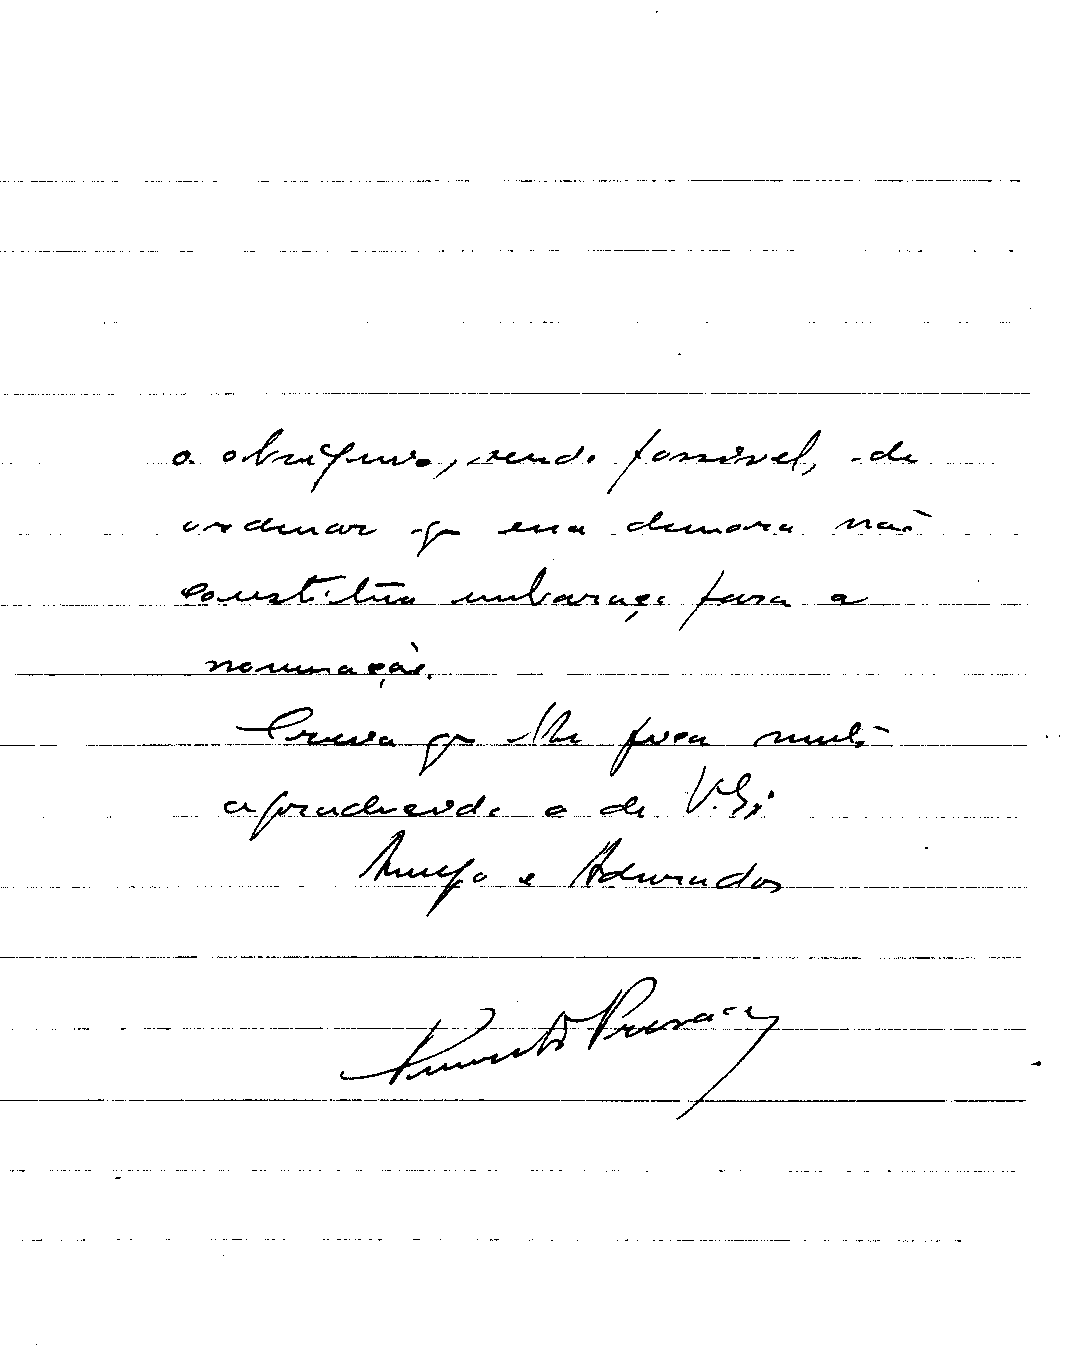 o obsequio, sendo possivel, de
ordenar q essa demora não
constitua embaraço para a
nomeação.
Creia q lhe fica muito
agradecido o de V. Ex.ª
Amgo e Admirador